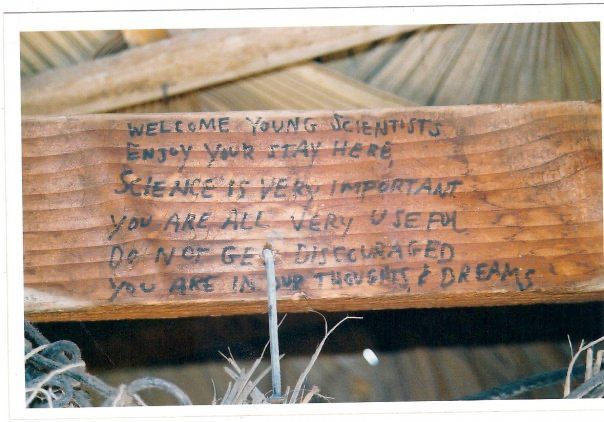 WELCOME YOUNG SCIENTISTS
ENJOY YOUR STAY HERE,
SCIENCE IS VERY IMPORTANT
YOU ARE ALL VERY USEFUL
DO NOT GET DISCOURAGED
YOU ARE IN OUR THOUGHTS & DREAMS